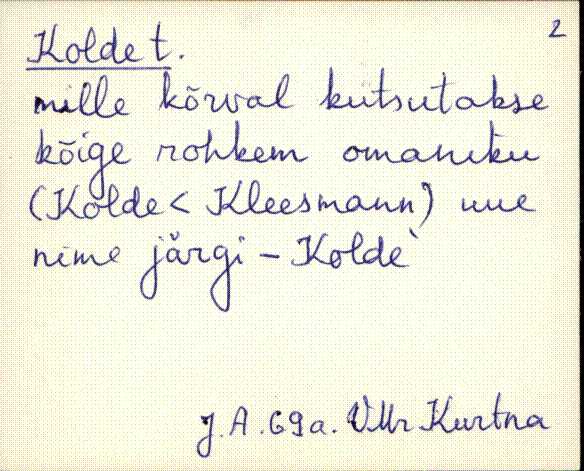 2
Kolde t.
mille kõrval kutsutakse
kõige rohkem omaniku
(Kolde < Kleesmann) uue
nime järgi – Kolde`
J.A. 69a. VMr Kurtna